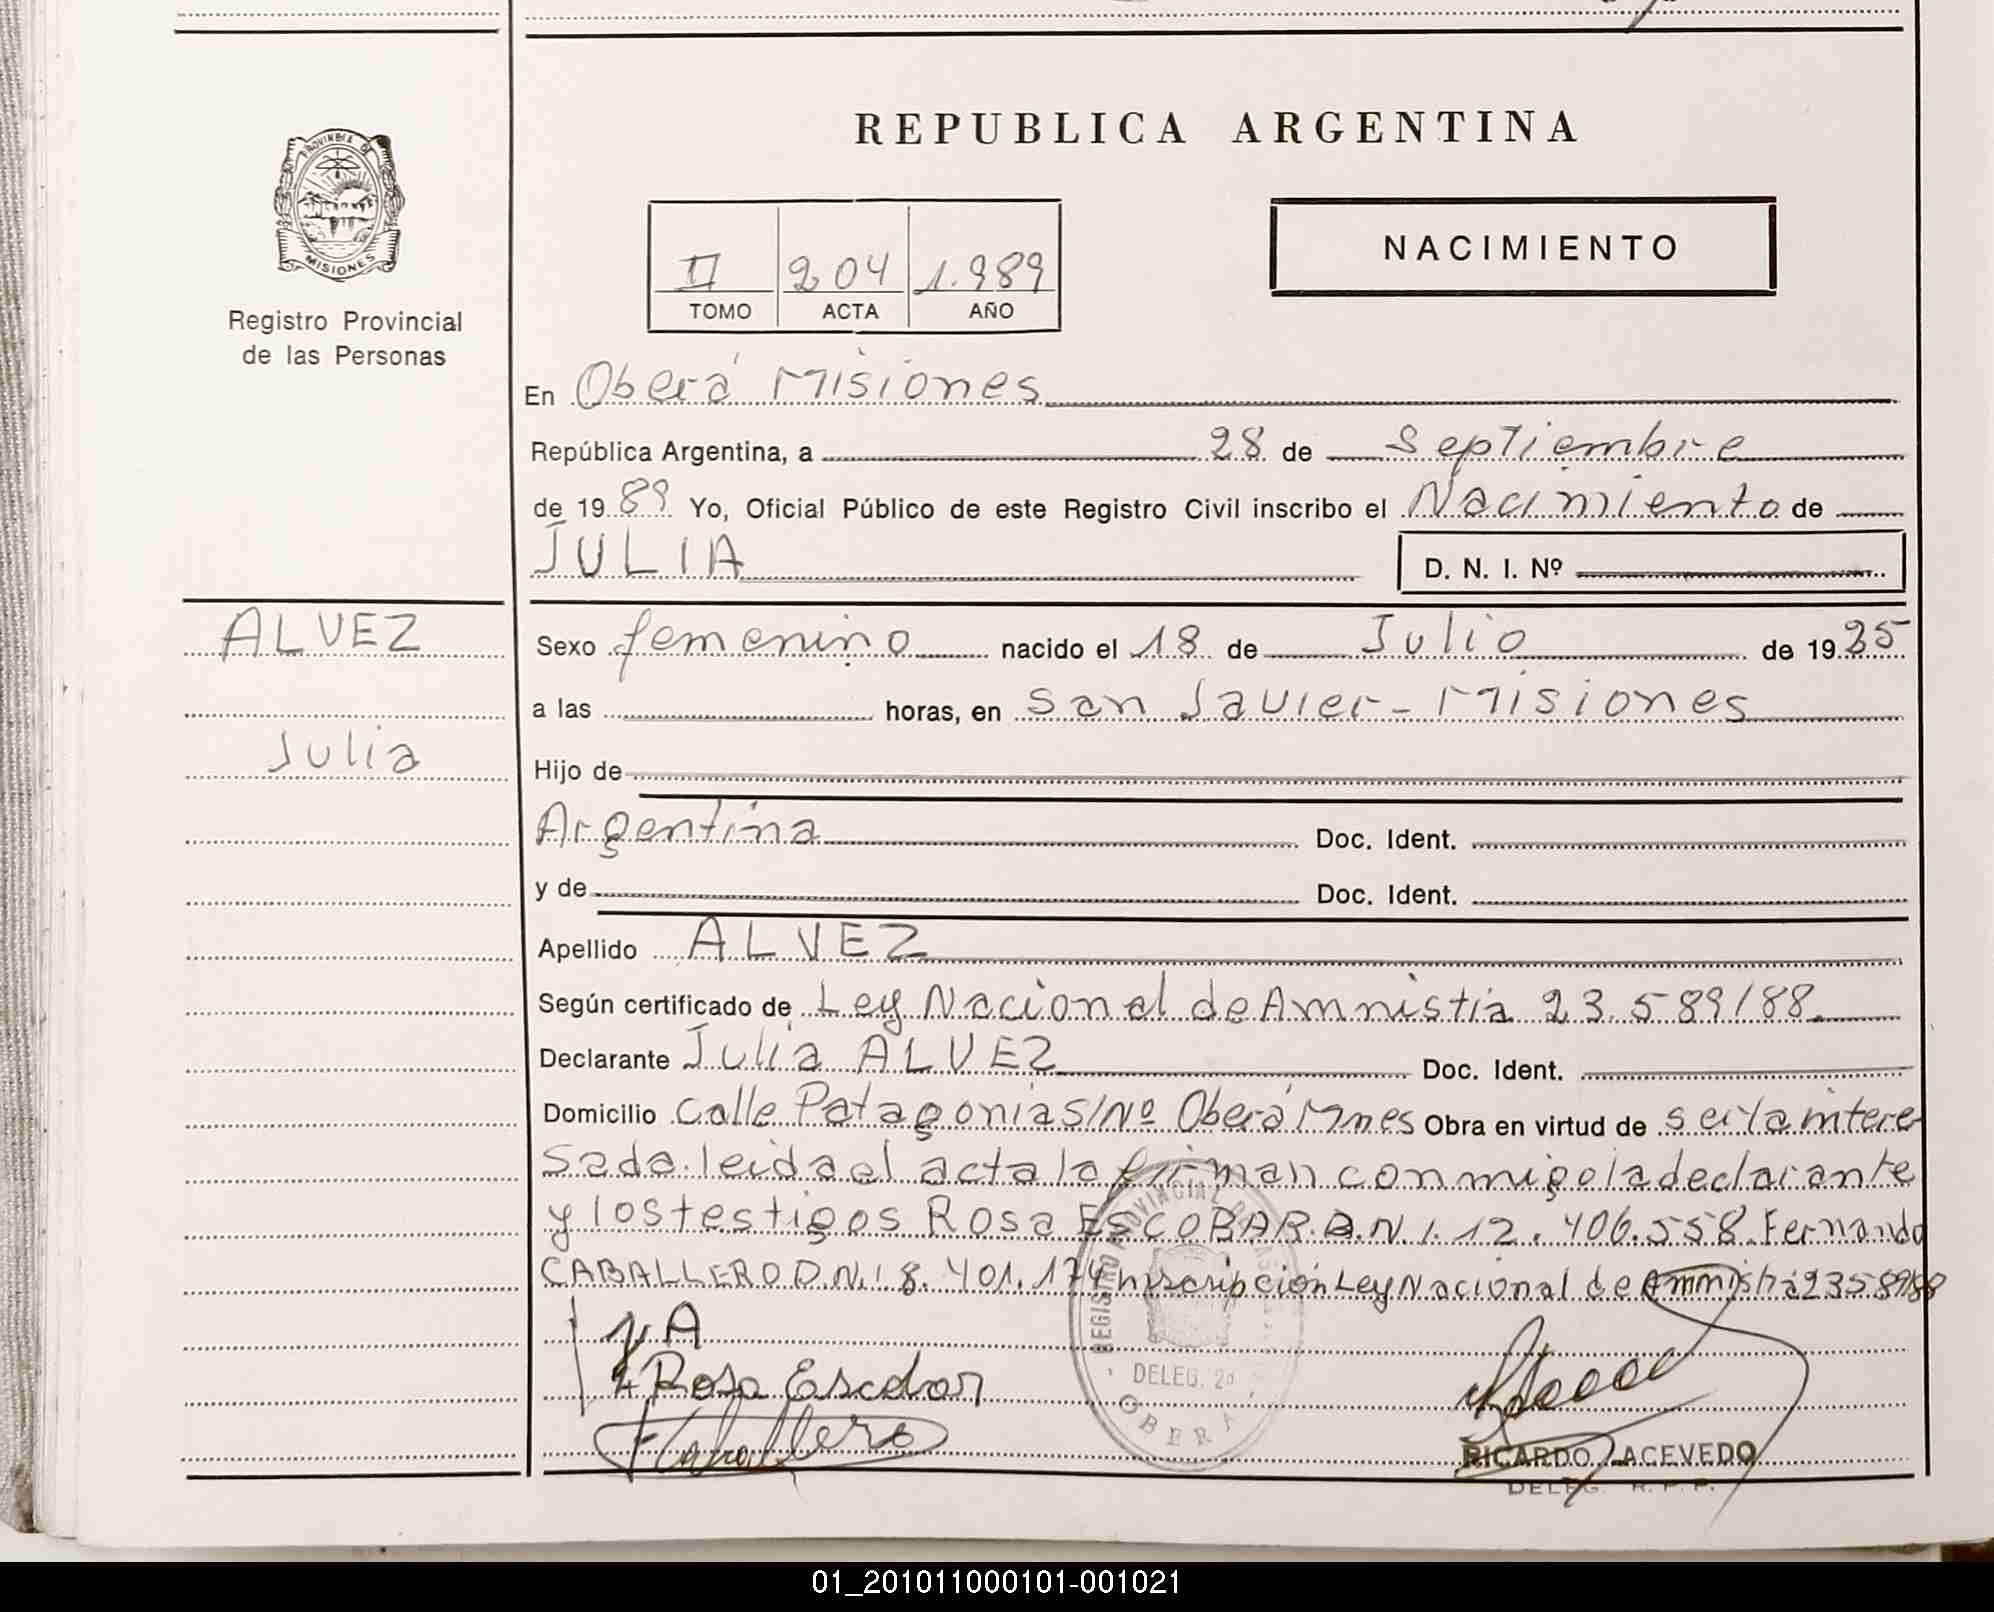 PROVINCIA DE
MISIONES
Registro Provincial
de las Personas
REPUBLICA ARGENTINA
NACIMIENTO
II 204 1.989
TOMO ACTA AÑO
En Oberá Misiones
República Argentina, a 28 de Septiembre
de 1989 Yo, Oficial Público de este Registro Civil inscribo el Nacimiento de
JULIA D. N. I. Nº
ALVEZ
Julia
Sexo femenino nacido el 18 de Julio de 1935
a las horas, en San Javier - Misiones
Hijo de
Argentina Doc. Ident.
y de Doc. Ident.
Apellido ALVEZ
Según certificado de Ley Nacional de Amnistia 23.589/88
Declarante Julia ALVEZ Doc. Ident.
Domicilio Calle Patagonia S/Nº Oberá Mnes Obra en virtud de ser la intere
sada. leida el acta la firman conmigo la declarante
y los testigos Rosa ESCOBAR D.N.I. 12.406.558 Fernando
CABALLERO D.N.I 8.401.174 Inscripción Ley Nacional de Amnistia 23589/88
A
Rosa Escobar
F Caballero
REGISTRO PROVINCIAL DE LAS
DELEG. 2ª
OBERA
RICARDO ACEVEDO
DELEG. R. P. P.
01_201011000101-001021